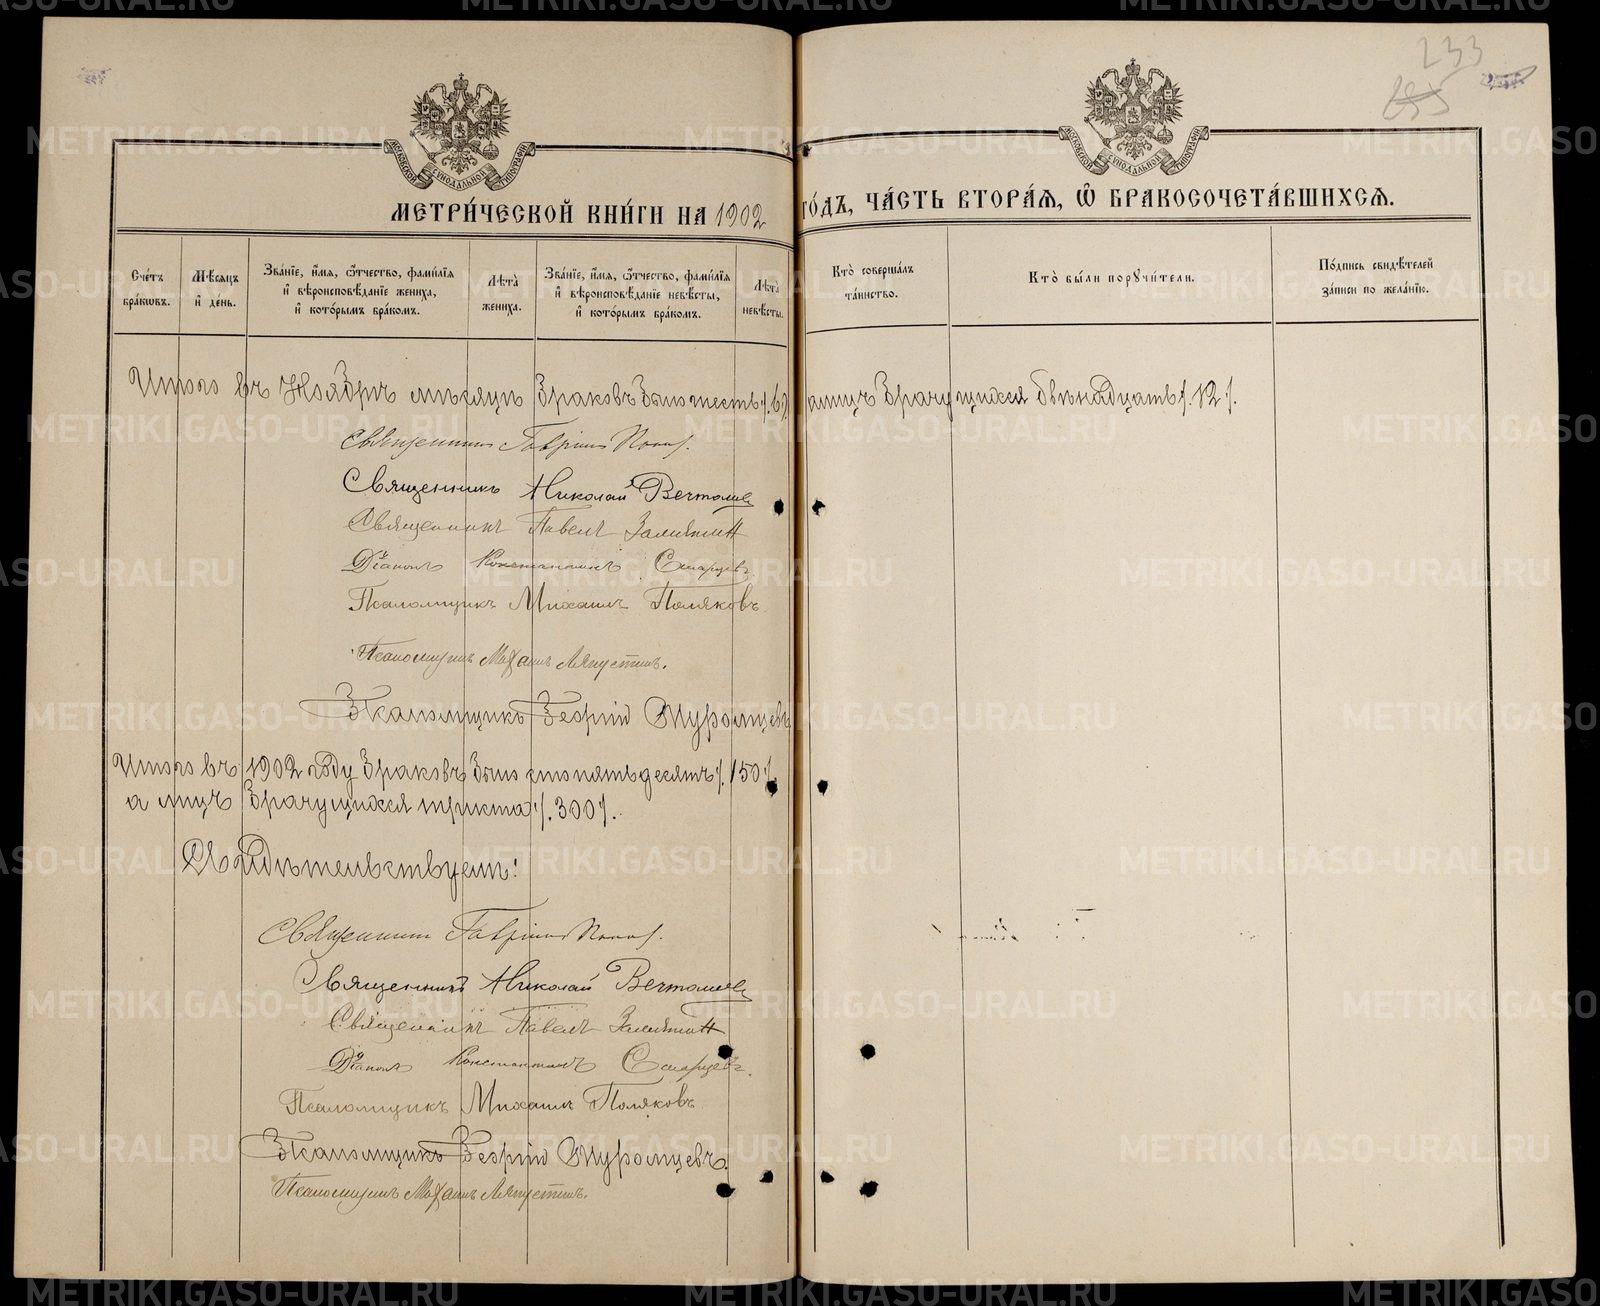 233
МОСКОВСКОЙ СѴНОДАЛЬНОЙ ТИПОГРАФІИ
МОСКОВСКОЙ СѴНОДАЛЬНОЙ ТИПОГРАФІИ
МЕТРИ́ЧЕСКОЙ КНИ́ГИ НА 1902 ГО́ДЪ, ЧА́СТЬ ВТОРА́Я, Ѽ БРАКОСОЧЕТА́ВШИХСЯ.
Сче́тъ бра́кѡвъ.
Мѣ́сяцъ и҆ де́нь.
Зва́ніе, и҆́мя, ѻ҆́тчество, фами́лія и҆ вѣроисповѣ́даніе жениха̀, и҆ кото́рымъ бра́комъ.
Лѣ́та жениха̀.
Зва́ніе, и҆́мя, ѻ҆́тчество, фами́лія и҆ вѣроисповѣ́даніе невѣ́сты, и҆ кото́рымъ бра́комъ.
Лѣ́та невѣ́сты.
Кто̀ соверша́лъ та́инство.
Кто̀ бы́ли порꙋчи́тели.
По́дпись свидѣ́телей за́писи по жела́нію.
Итого въ Ноябрѣ мѣсяцѣ браковъ было шесть /.6/. а лицъ брачущихся двѣнадцать /.12/.
Священникъ Гавріилъ Поповъ.
Священникъ Николай
Священникъ Павелъ Замятин
Діаконъ Константинъ Старцевъ.
Псаломщикъ Михаилъ Поляковъ
Псаломщикъ Михаилъ Ляпустинъ.
Псаломщикъ Георгій Муромцевъ
Итого въ 1902 году браковъ было сто пятьдесятъ /.150/.
а лицъ брачущихся триста /.300/.
Свидѣтельствуемъ:
Священникъ Гавріилъ Поповъ.
Священникъ Николай
Священникъ Павелъ Замятин
Діаконъ Константинъ Старцевъ.
Псаломщикъ Михаилъ Поляковъ
Псаломщикъ Георгій Муромцевъ.
Псаломщикъ Михаилъ Ляпустинъ.
METRIKI.GASO-URAL.RU